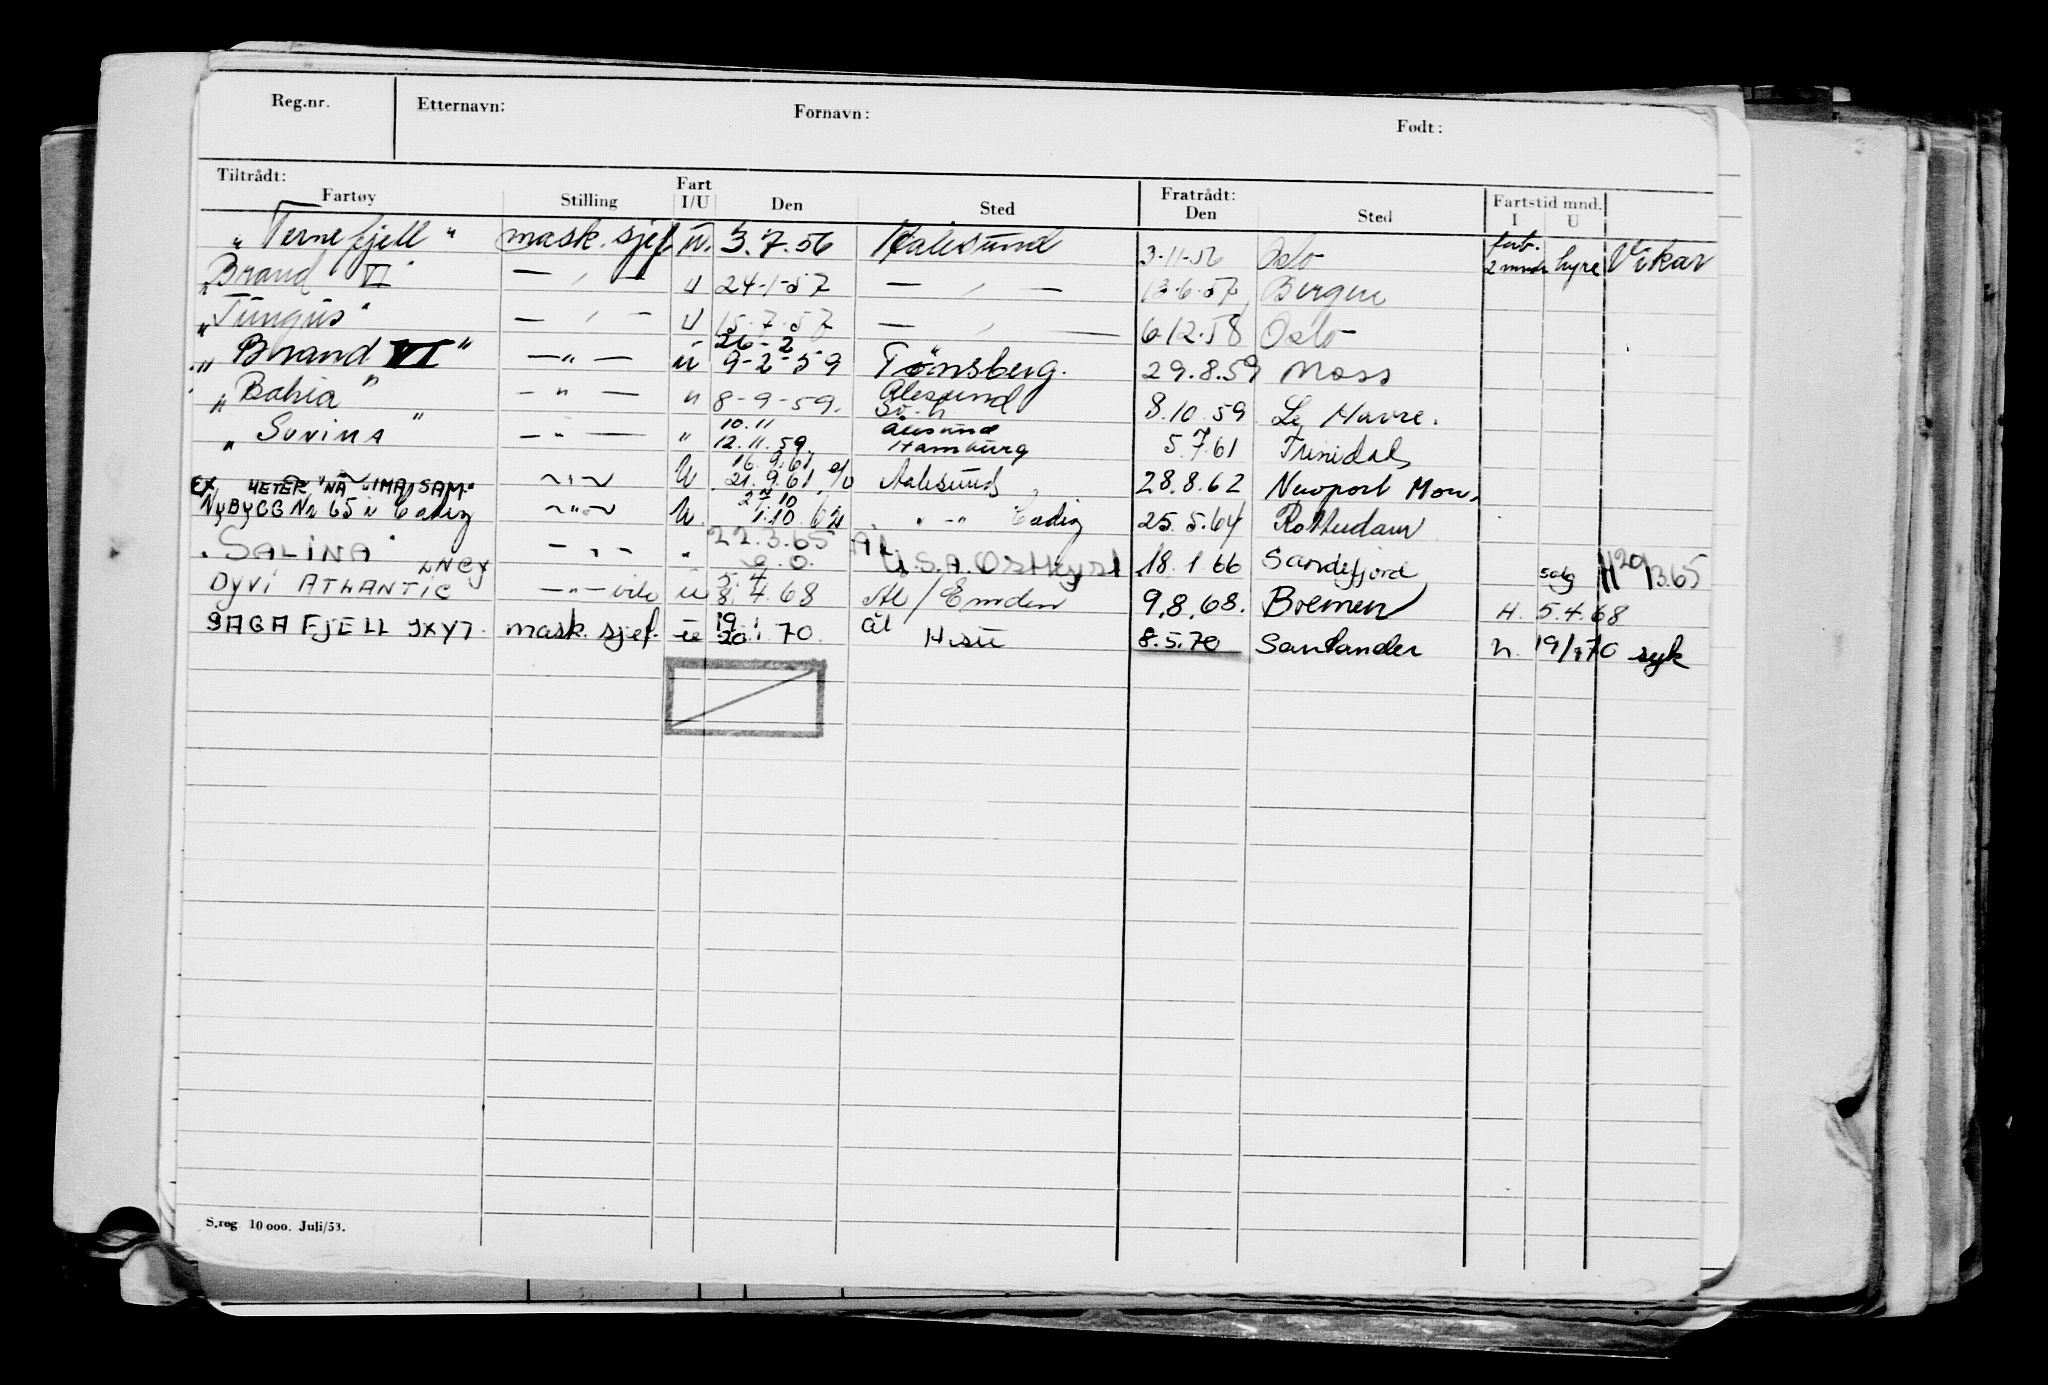 Reg.nr. Etternavn: Fornavn: Født:
Tiltrådt: Fartøy Stilling Fart I/U Den Sted Fratrådt: Den Sted Fartstid mnd. I U
"Ternefjell" mask. sjef U. 3.7.56 Aalesund 3-11-56 Oslo fort. 2 mndr hyre Vikar
"Brand VI" — " — U 24-1-57 — " — 13-6-57 Bergen
"Tungus" — " — U 15.7.57 — " — 6.12.58 Oslo
"Brand VI" — " — U 26-2 9-2-59 Tønsberg. 29.8.59 Moss
"Bahia" — " — " 8-9-59. Ålesund 8.10.59 Le Havre.
"Sovina" — " — " 10.11 12.11.59. Ålesund Hamburg 5.7.61 Trinidad
Ex "HETER "NÅ "IMA SAM" — " — U 16.9.61 21.9.61 Aalesund 28.8.62 Newport Mon.
NyBYGG Nr 65 i Cadiz — " — U 2/10 1.10.62 " — " Cadiz 25.5.64 Rotterdam
"SALINA" — " — " 22.3.65 Ål U.S.A. Østkyst 18.1.66 Sandefjord salg H 29/3.65
DYVI ATLANTIC LNCY — " — vik U 5.4 8.4.68 Ål / Emden 9.8.68. Bremen H. 5.4.68
SAGAFJELL JXYJ. mask. sjef. U 19 20.1.70. Ål Hsu 8.5.70 Santander H. 19/1 70 syk
S.reg 10 000. Juli/53.